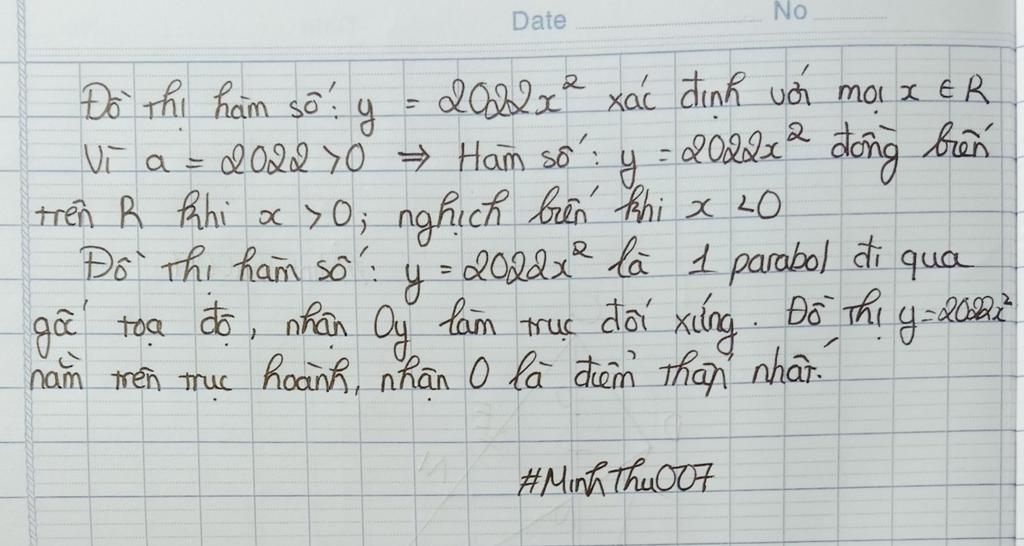 Date No
Đồ thị hàm số: y = 2022x² xác định với mọi x ∈ R
Vì a = 2022 > 0 ⇒ Hàm số: y = 2022x² đồng biến
trên R khi x > 0; nghịch biến khi x < 0
Đồ thị hàm số: y = 2022x² là 1 parabol đi qua
gốc toạ độ, nhận Oy làm trục đối xứng. Đồ thị y = 2022x²
nằm trên trục hoành, nhận O là điểm thấp nhất.
#MinhThu007